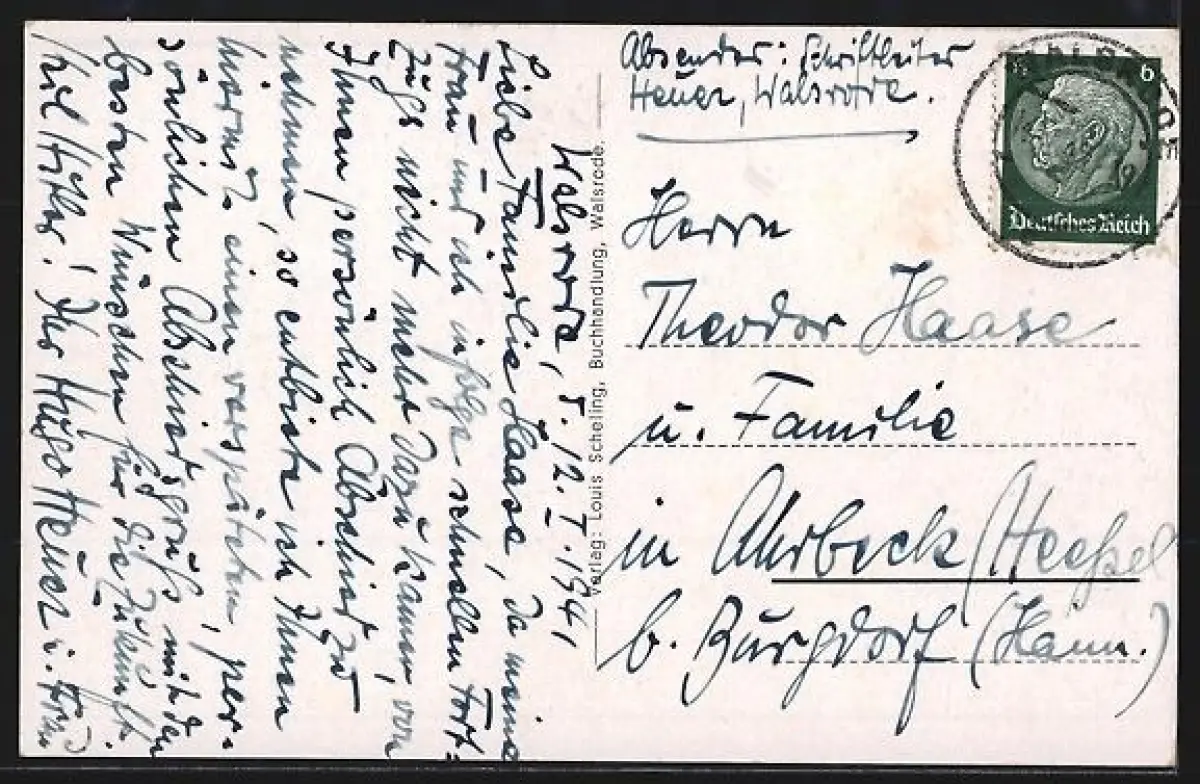 Absender: Schriftleiter
Heuer, Walsrode.
6
Deutsches Reich
Herrn
Theodor Haase
u. Familie
in Ahrbeck/Heeßel
b. Burgdorf (Hann.)
Verlag: Louis Scheling, Buchhandlung, Walsrode.
Walsrode, 5.12.1941
Liebe Familie Haase, da meine
Frau und ich infolge schnellen Fort-
zugs nicht mehr dazu kamen, von
Ihnen persönlich Abschied zu
nehmen, so entbiete ich Ihnen
hiermit einen verspäteten, per-
sönlichen Abschiedsgruß mit den
besten Wünschen für die Zukunft.
Heil Hitler! Ihr Hugo Heuer u. Frau